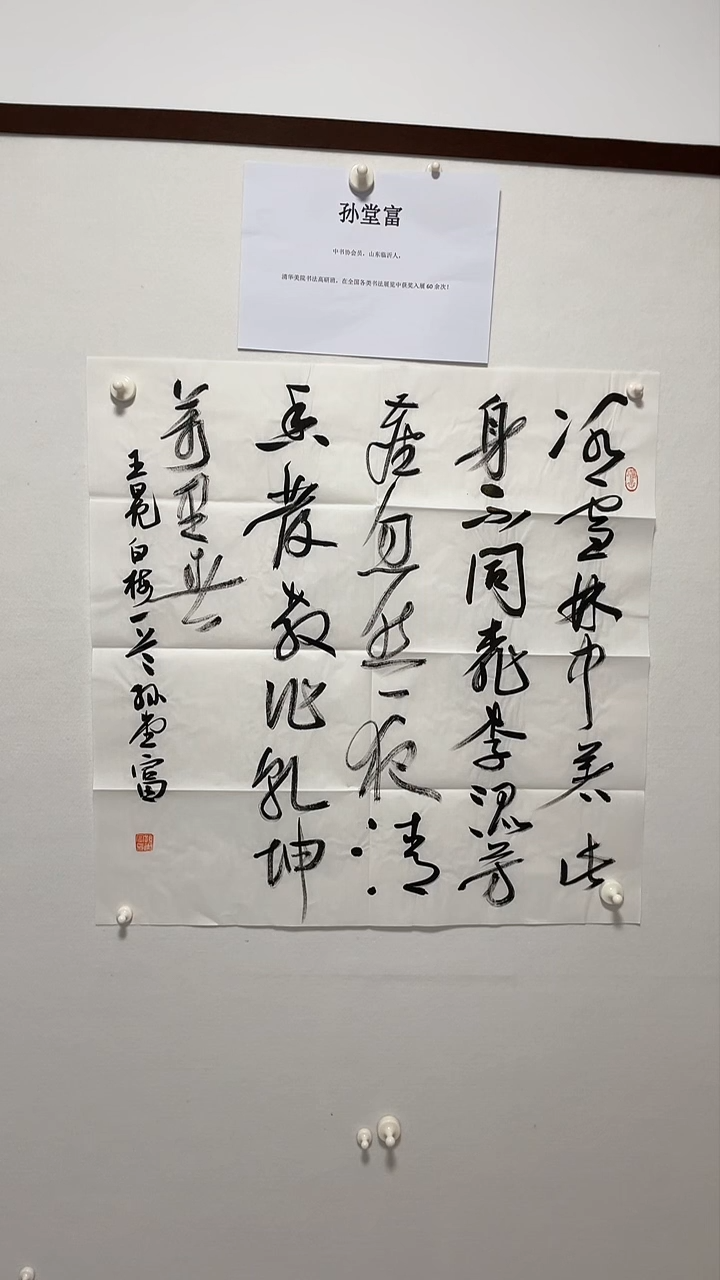 孙堂富
中书协会员，山东临沂人，
清华美院书法高研班，在全国各类书法展览中获奖入展 60 余次！
冰雪林中著此
身不同桃李混芳
塵忽然一夜清
香發散作乾坤
萬里春
王冕白梅一首孙堂富